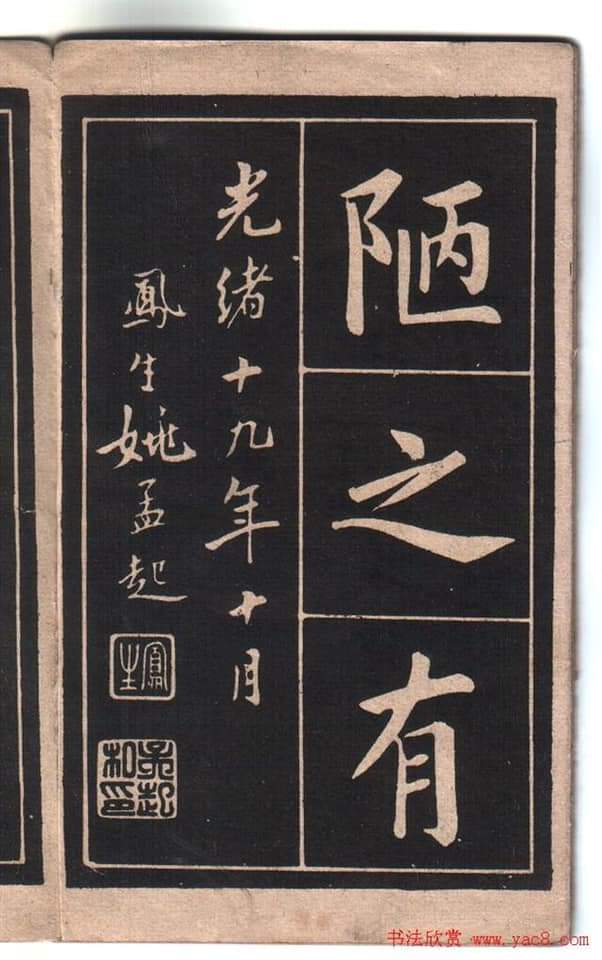 陋之有
光緒十九年十月
鳳生姚孟起
鳳生
孟起和印
书法欣赏 www.yac8.com